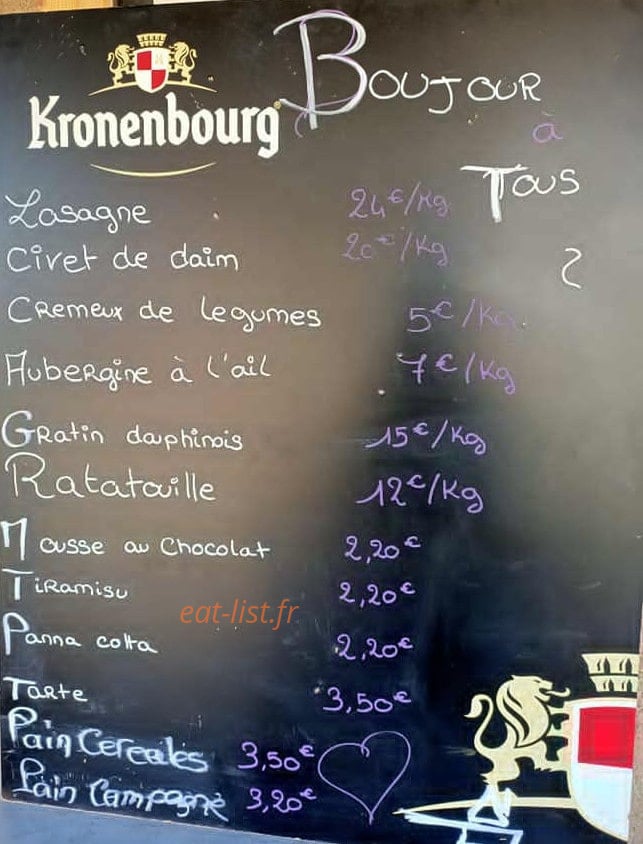 Kronenbourg
Boujour
à
Tous
Lasagne 24€/Kg
Civet de daim 20€/Kg
Cremeux de legumes 5€/Kg
Aubergine à l'ail 7€/Kg
Gratin dauphinois 15€/Kg
Ratatouille 12€/Kg
Mousse au Chocolat 2,20€
Tiramisu 2,20€
eat-list.fr
Panna cotta 2,20€
Tarte 3,50€
Pain Cereales 3,50€
Pain Campagne 3,20€